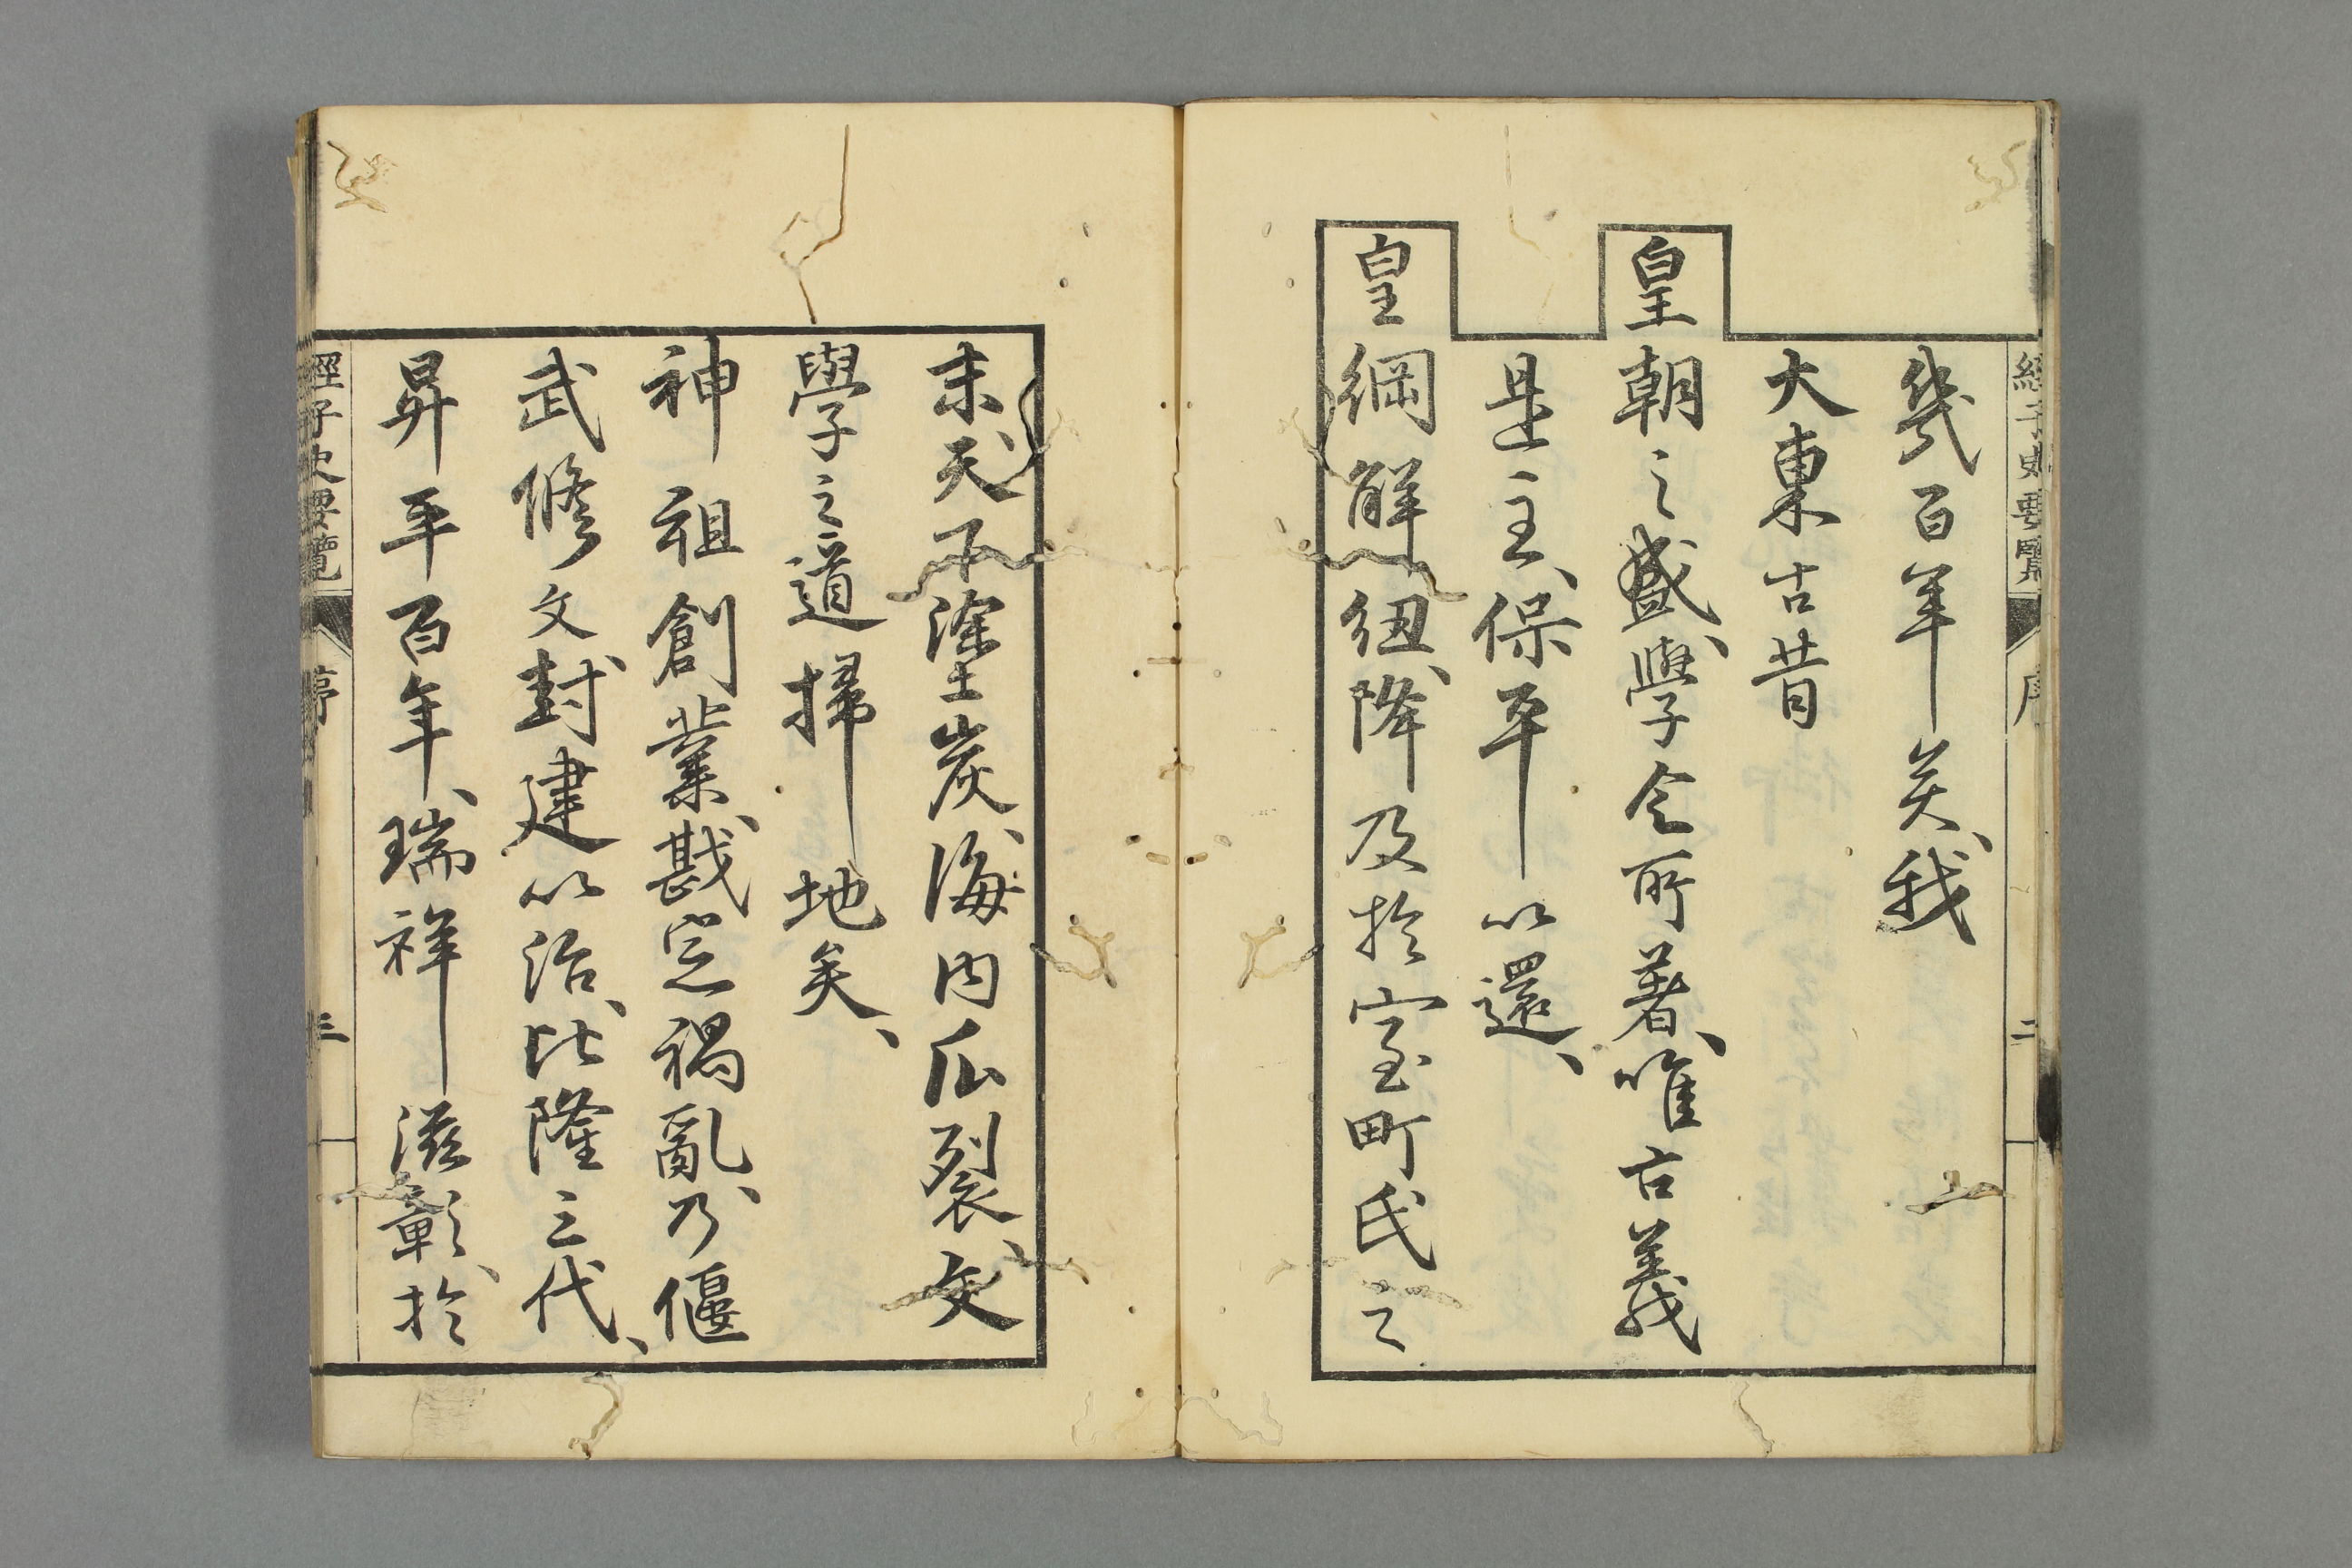 經子史要覽 序 二
幾百年矣、我
大東古昔
皇朝之盛、學令所著、唯古義
是主、保平以還、
皇綱解紐、降及於室町氏之
末、天下塗炭、海內瓜裂、文
學之道掃地矣、
神祖創業、戡定禍亂、乃偃
武修文、封建以治、比隆三代、
昇平百年、瑞祥滋彰、於
經子史要覽 序 三